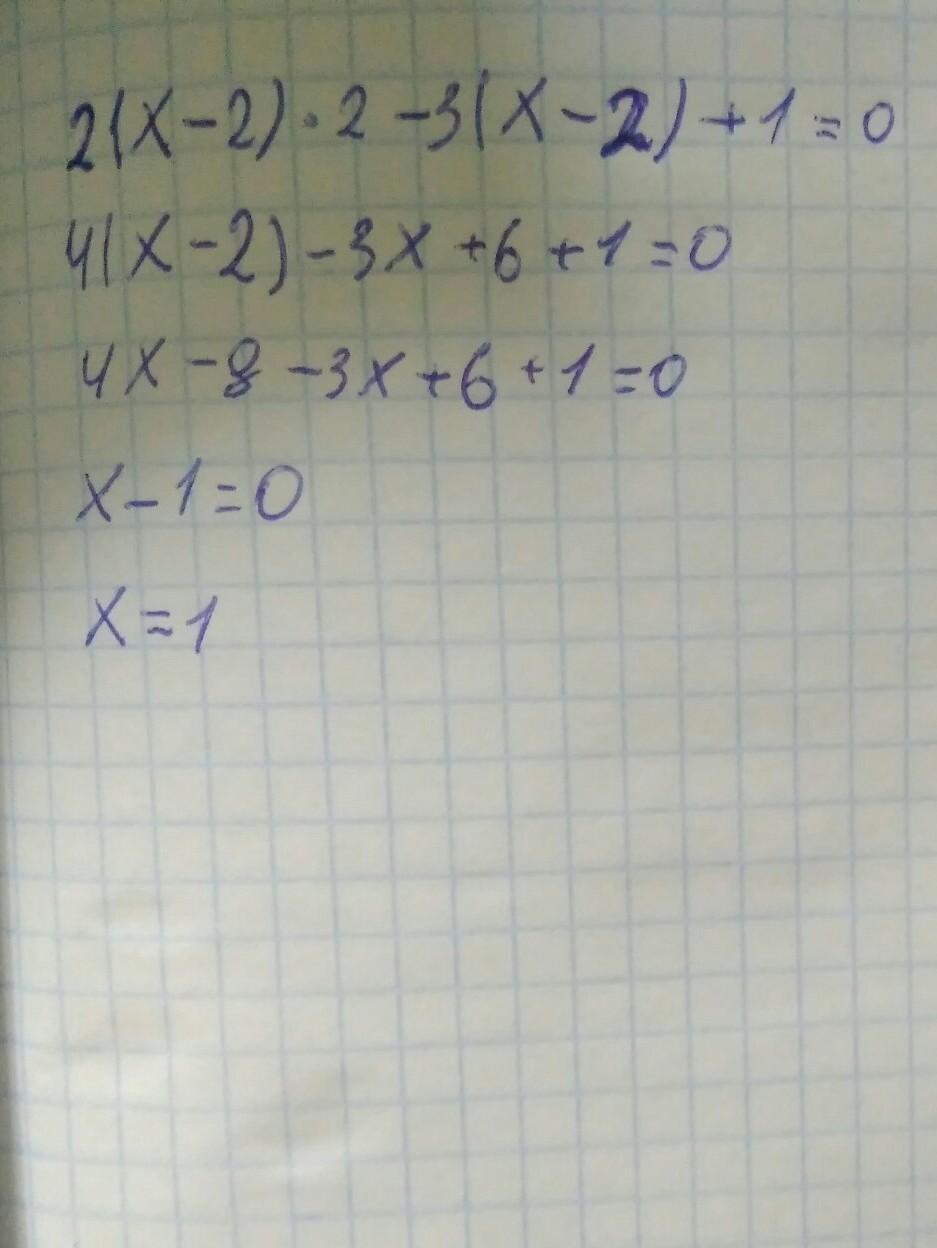 2(x-2)·2-3(x-2)+1=0
4(x-2)-3x+6+1=0
4x-8-3x+6+1=0
x-1=0
x=1